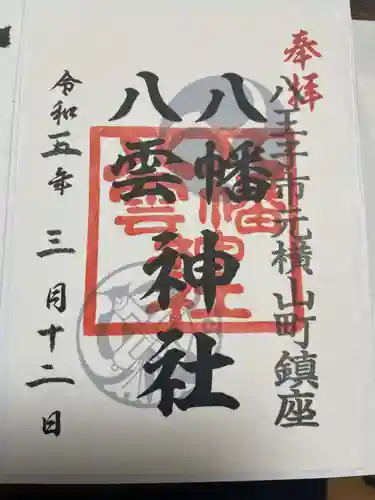 奉拝
八王子市元横山町鎮座
八幡
八雲
神社
令和五年三月十二日